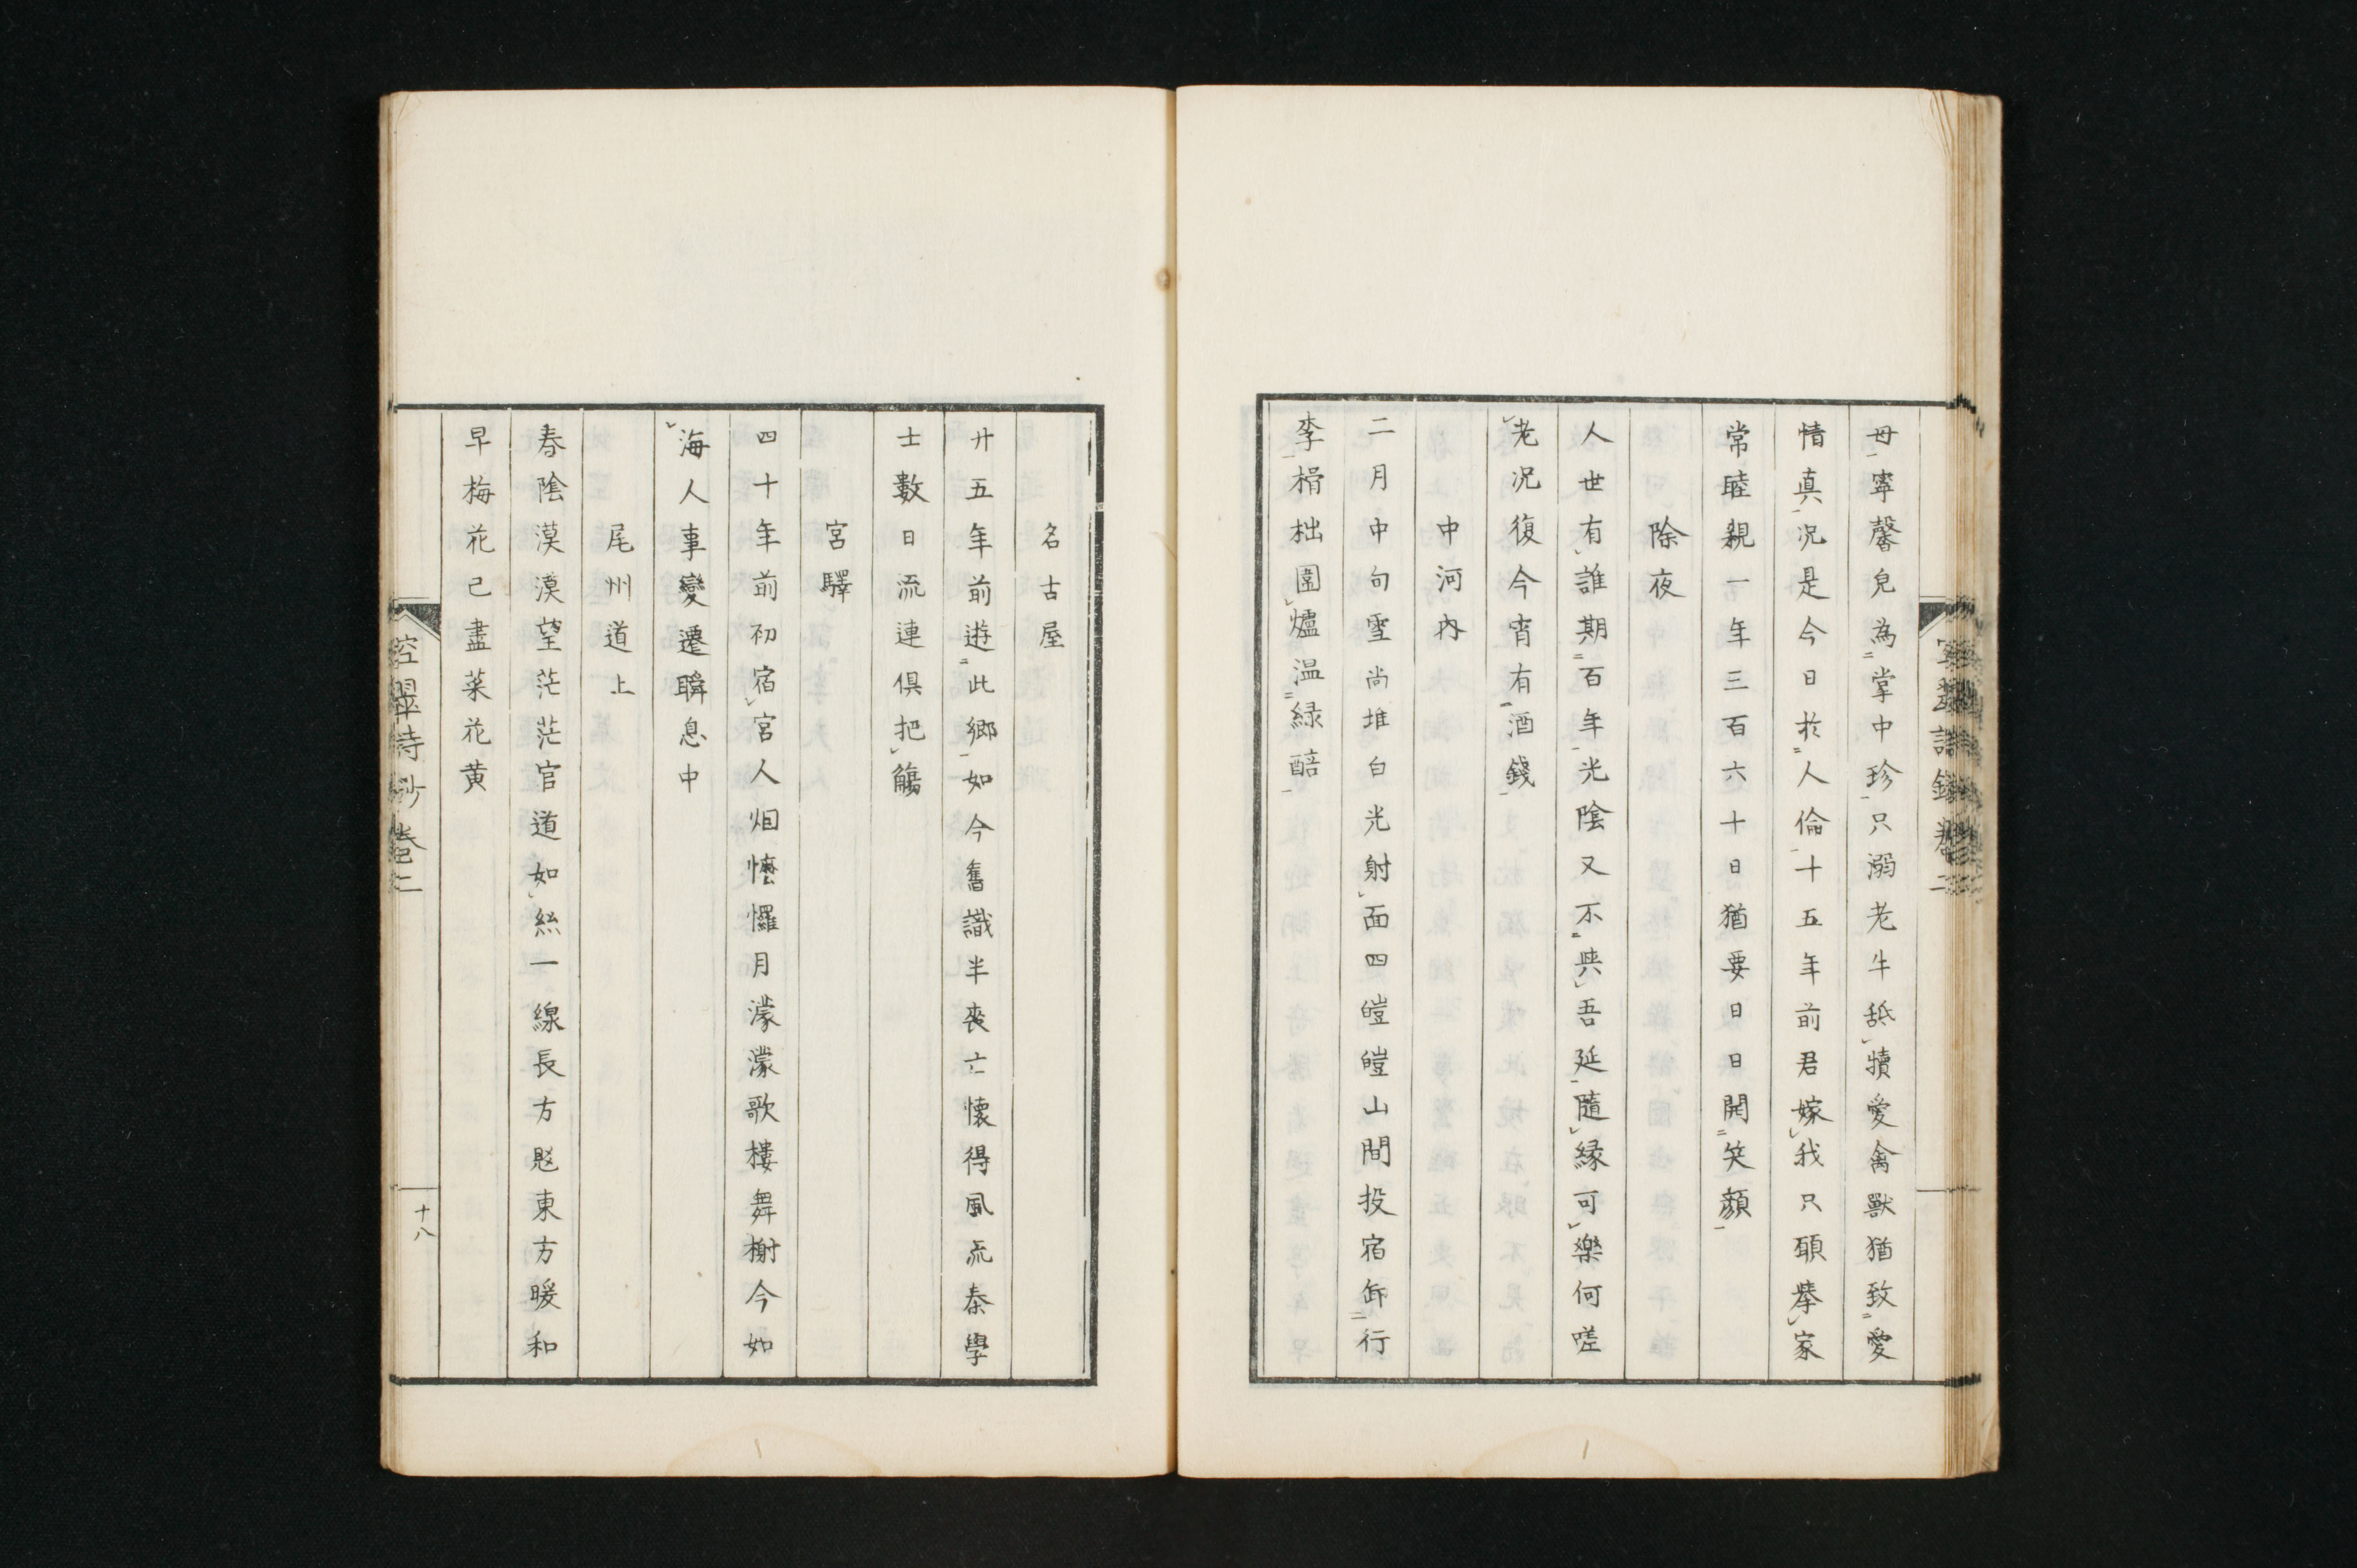 母寧馨兒為掌中珍只溺老牛舐犢愛禽獸猶致愛
情真況是今日於人倫十五年前君嫁我只願擧家
常睦親一年三百六十日猶要日日開笑顔
除夜
人世有誰期百年光陰又不與吾延隨縁可樂何嗟
老况復今宵有酒錢
中河内
二月中旬雪尚堆白光射面四皚皚山間投宿卸行
李榾柮圍爐温緑醅
名古屋
廿五年前遊此郷如今舊識半喪亡懐得風流泰學
士數日流連倶把觴
宮驛
四十年前初宿宮人烟懡㦬月濛濛歌樓舞榭今如
海人事變遷瞬息中
尾州道上
春陰漠漠望茫茫官道如絲一線長方覐東方暖和
早梅花已盡菜花黄
空翠詩鈔卷二
十八